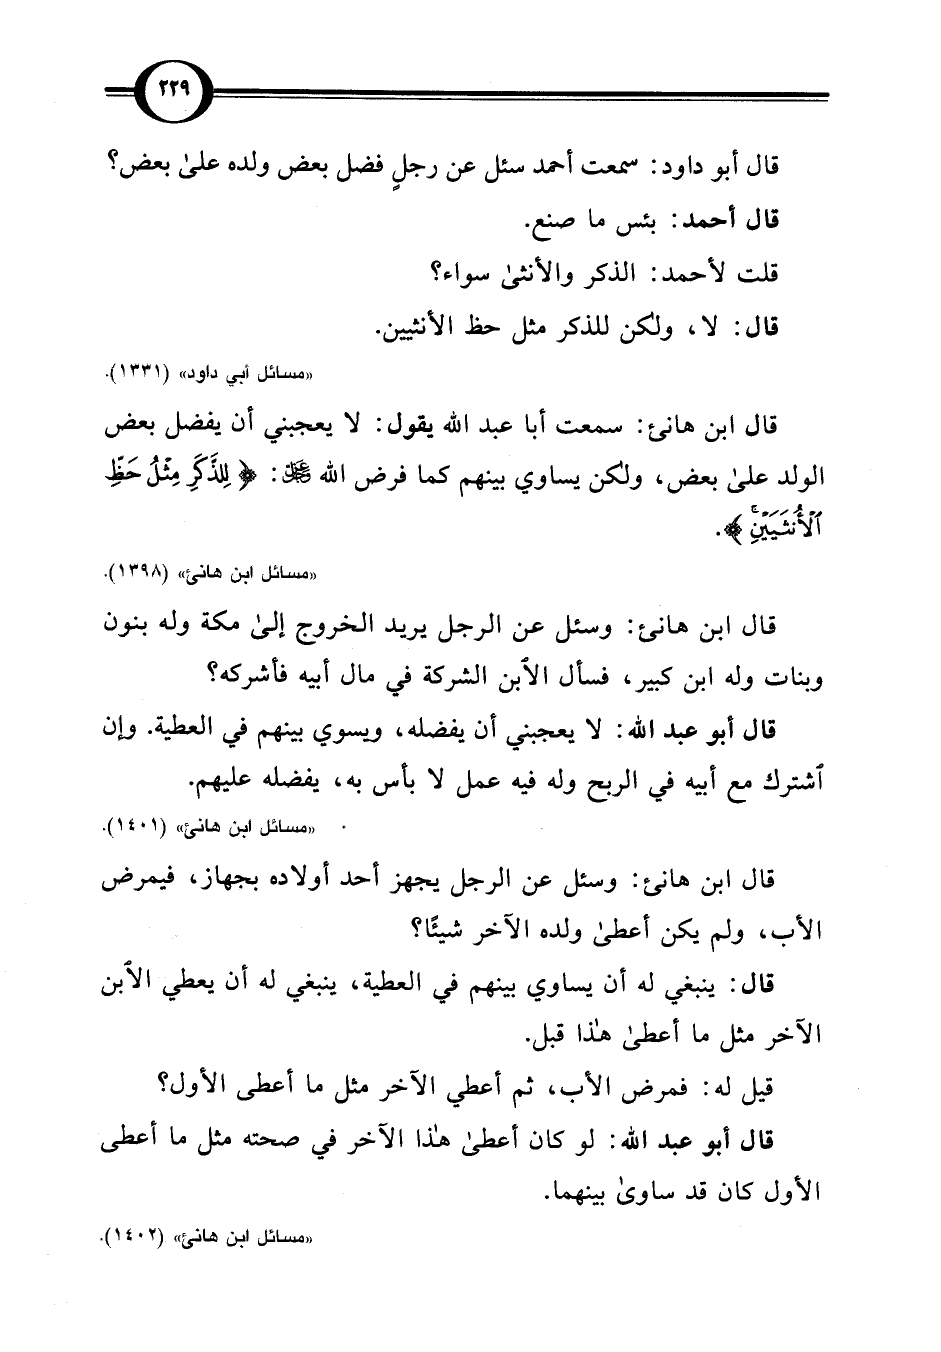 ٢٢٩
قال أبو داود: سمعت أحمد سئل عن رجلٍ فضل بعض ولده علىٰ بعض؟
قال أحمد: بئس ما صنع.
قلت لأحمد: الذكر والأنثىٰ سواء؟
قال: لا، ولكن للذكر مثل حظ الأنثيين.
«مسائل أبي داود» (١٣٣١).
قال ابن هانئ: سمعت أبا عبد الله يقول: لا يعجبني أن يفضل بعض
الولد علىٰ بعض، ولكن يساوي بينهم كما فرض الله ﷿: ﴿لِلذَّكَرِ مِثْلُ حَظِّ
ٱلْأُنثَيَيْنِۚ﴾.
«مسائل ابن هانئ» (١٣٩٨).
قال ابن هانئ: وسئل عن الرجل يريد الخروج إلىٰ مكة وله بنون
وبنات وله ابن كبير، فسأل الٱبن الشركة في مال أبيه فأشركه؟
قال أبو عبد الله: لا يعجبني أن يفضله، ويسوي بينهم في العطية. وإن
ٱشترك مع أبيه في الربح وله فيه عمل لا بأس به، يفضله عليهم.
«مسائل ابن هانئ» (١٤٠١).
قال ابن هانئ: وسئل عن الرجل يجهز أحد أولاده بجهاز، فيمرض
الأب، ولم يكن أعطىٰ ولده الآخر شيئًا؟
قال: ينبغي له أن يساوي بينهم في العطية، ينبغي له أن يعطي الٱبن
الآخر مثل ما أعطىٰ هٰذا قبل.
قيل له: فمرض الأب، ثم أعطي الآخر مثل ما أعطى الأول؟
قال أبو عبد الله: لو كان أعطىٰ هٰذا الآخر في صحته مثل ما أعطى
الأول كان قد ساوىٰ بينهما.
«مسائل ابن هانئ» (١٤٠٢).